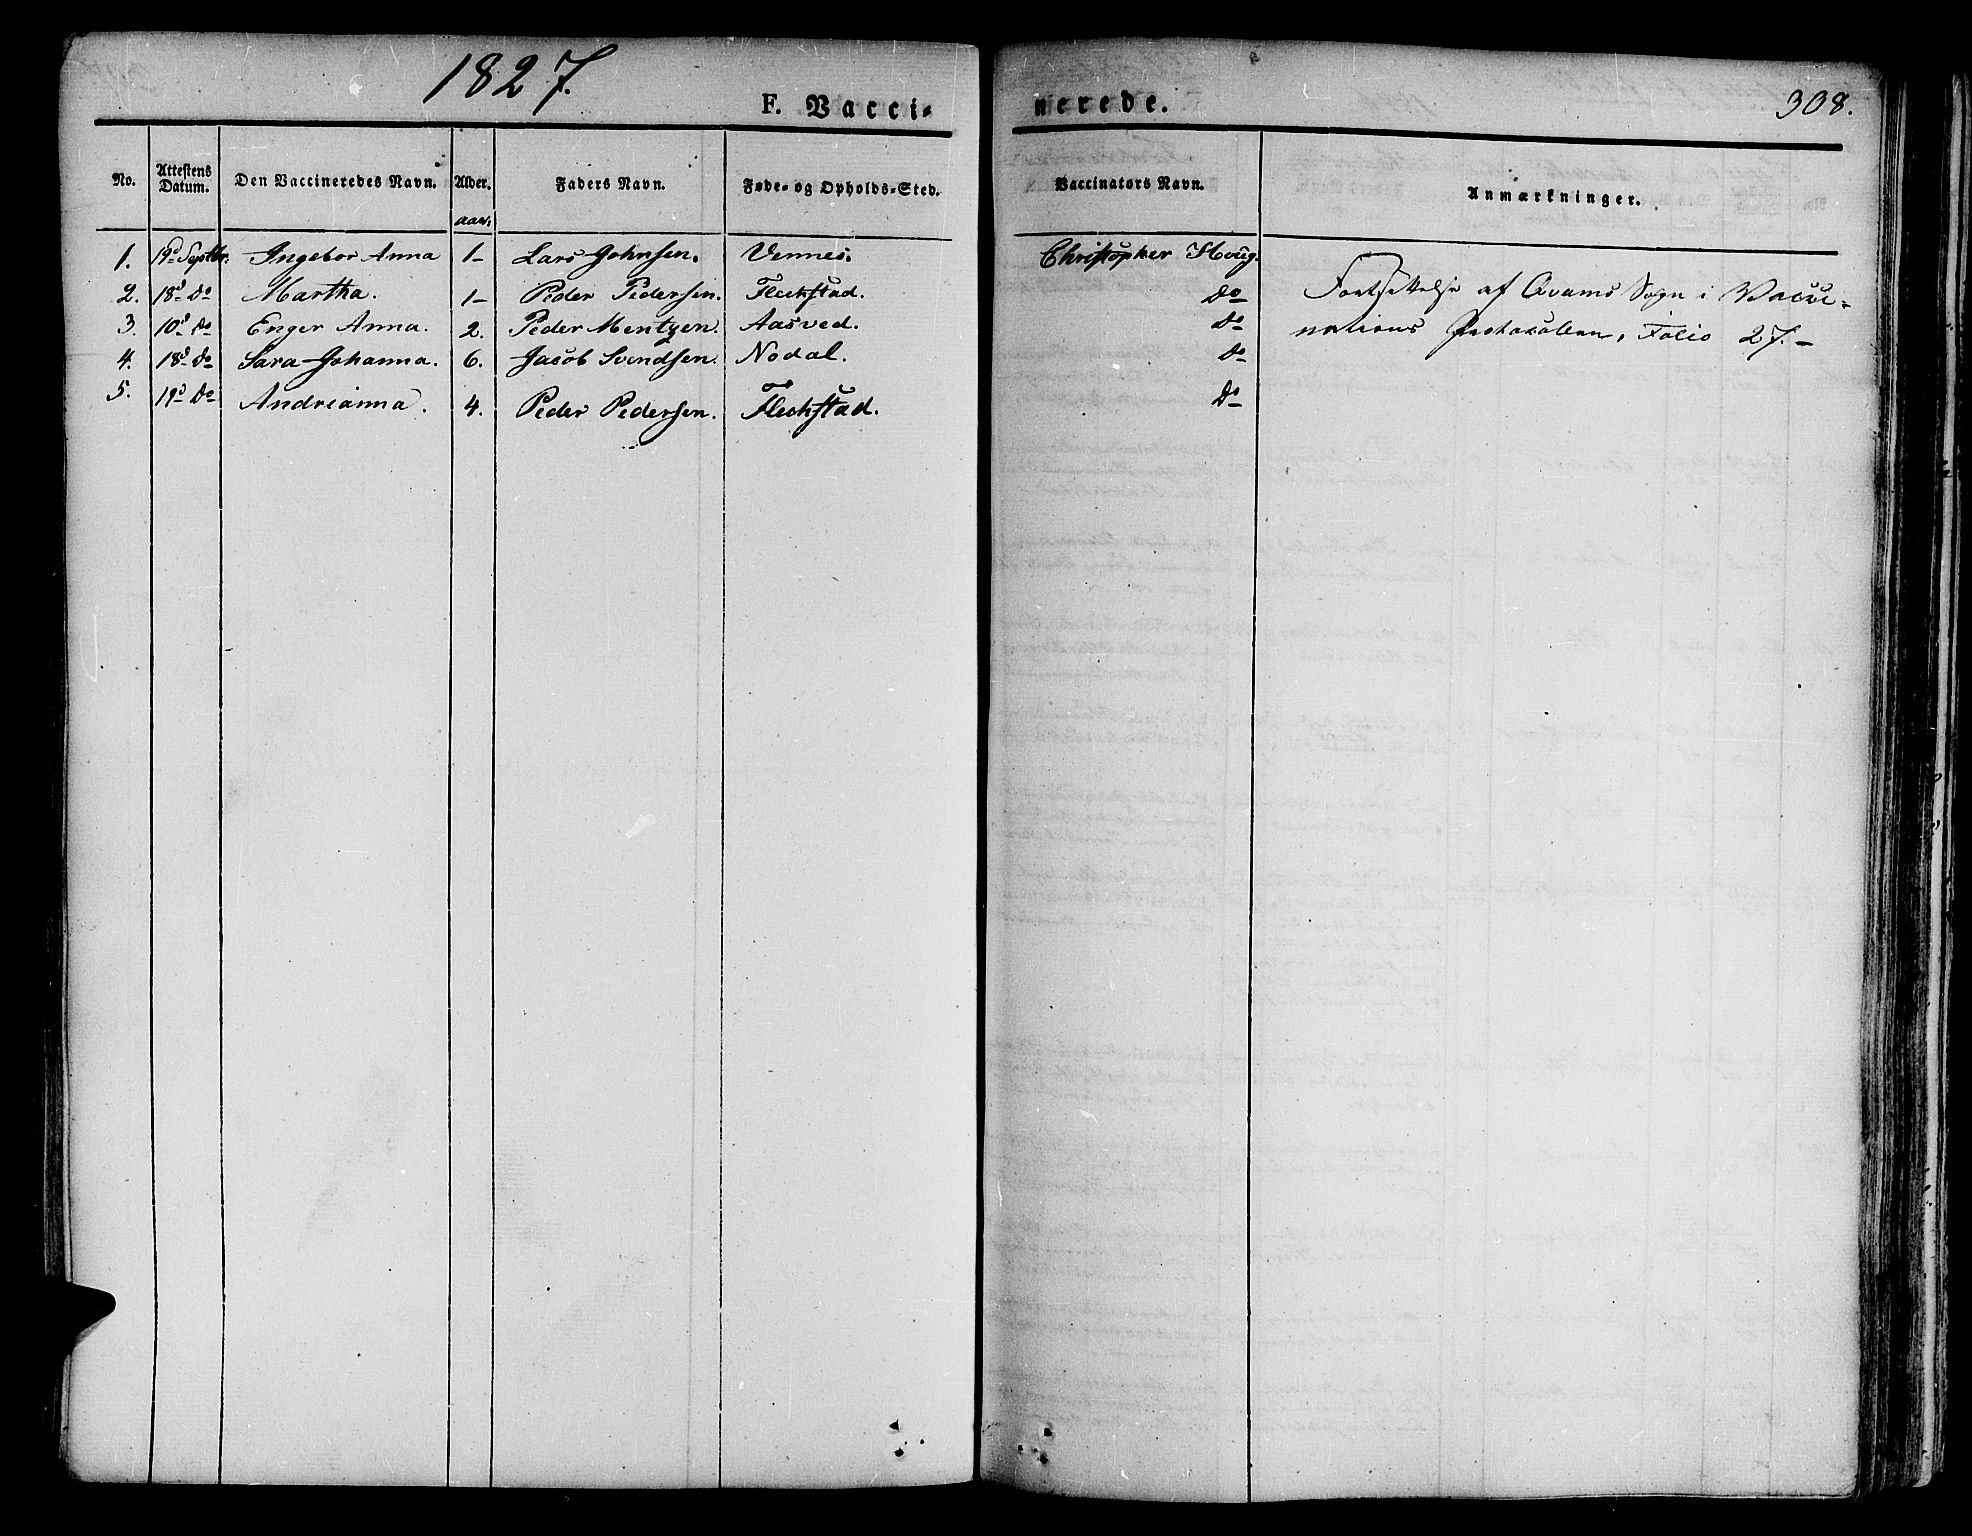 1827.
F. Vacci-
nerede.
308.
No.
Attestens Datum.
Den Vaccineredes Navn.
Alder.
aar.
Faders Navn.
Føde- og Opholds-Sted.
Vaccinators Navn.
Anmærkninger.
1. 19d Septbr. Ingebor Anna 1- Lars Johnsen. Vennes. Christopher Houg.
2. 18d Do Martha. 1- Peder Pedersen. Fleckstad. Do
3. 10d Do Enger Anna. 2. Peder Mentzen. Aasved. Do
4. 18d Do Sara Johanna. 6. Jacob Svendsen. Nodal. Do
5. 19d Do Andrianna. 4. Peder Pedersen. Fleckstad. Do
Fortsættelse af Qvams Sogn i Vacci-
nations Protocollen, Folio 27.-